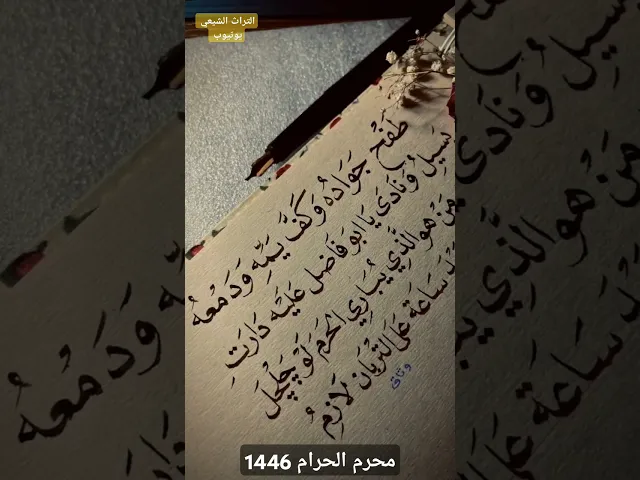 التراث الشيعي
يوتيوب
طَفَح جَوَادُه وَكَفَّ يَمِّه وَدَمْعُه
سِيلُ وَنَادَى يَا ابو فَاضل عَلَيْه دَارَتِ
مَنْ هو الَّذِي يُبَارِي الحَرَم لَوْ چَلْچَل
سَاعَة عَلَى التربَان لَازِمُ
محرم الحرام 1446